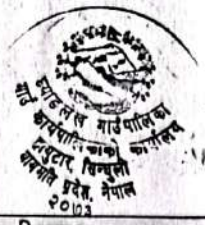 ह्याङलेख गाउँपालिका
गाउँ कार्यपालिकाको कार्यालय
सिन्धुली
बागमती प्रदेश, नेपाल
२०७३